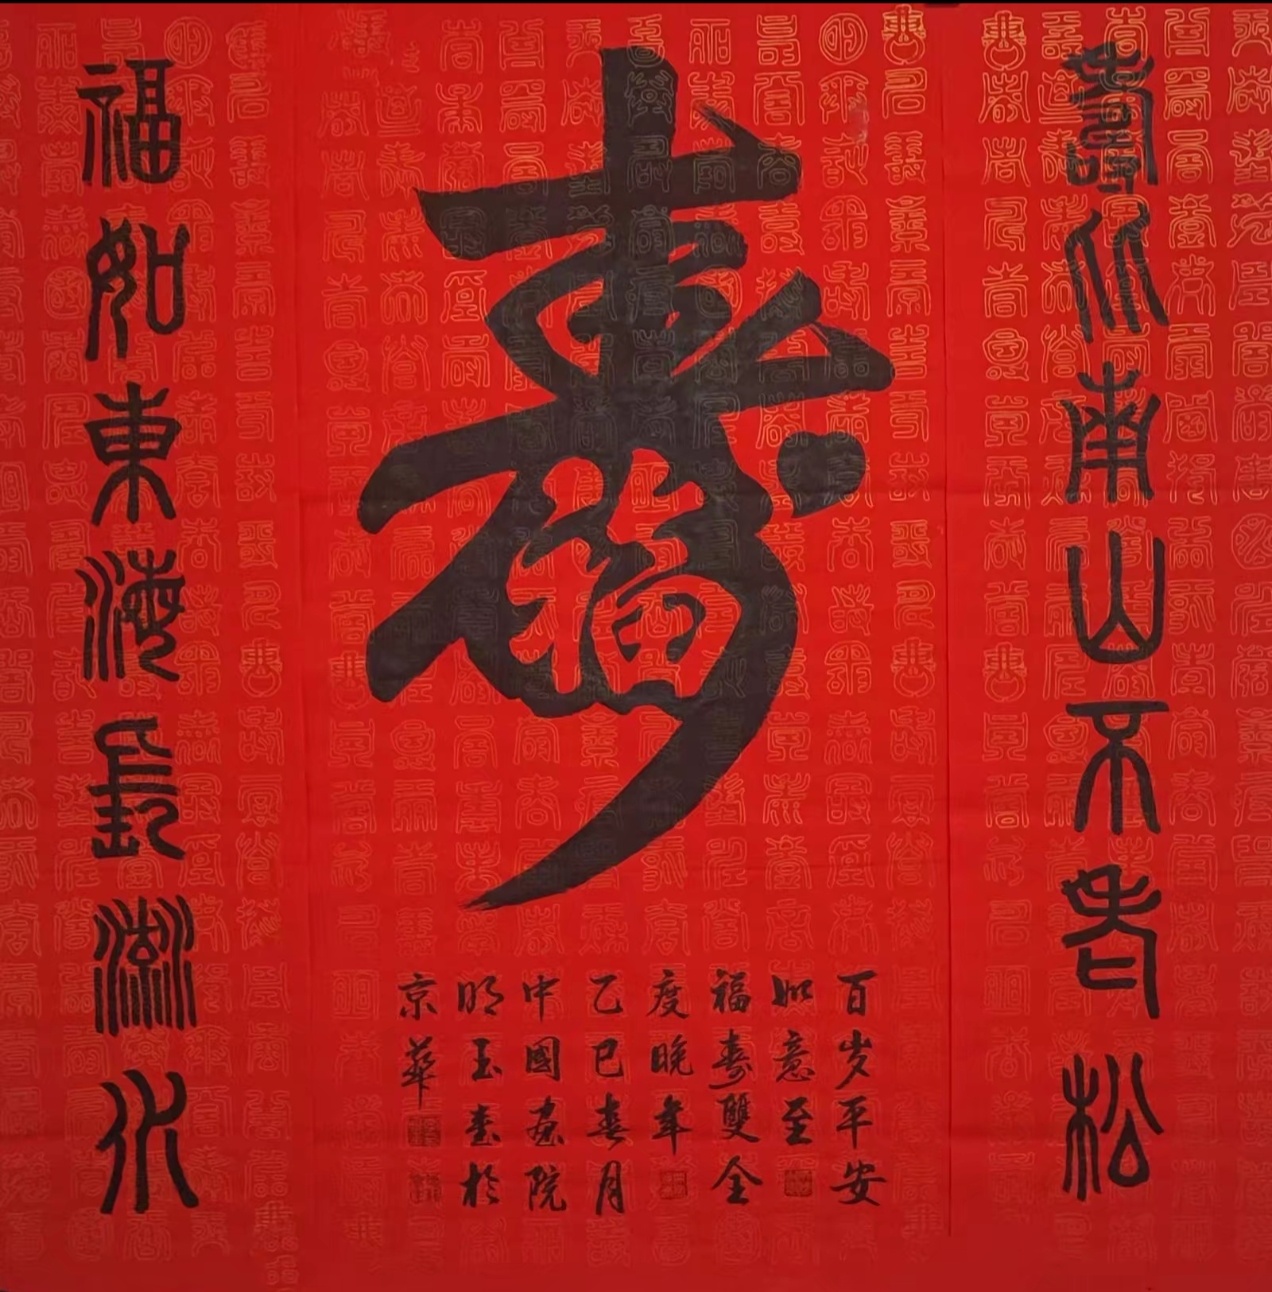 壽比南山不老松
壽
百岁平安
如意至
福壽雙全
度晚年
乙巳春月
中國畫院
明玉書於
京華
福如東海長流水